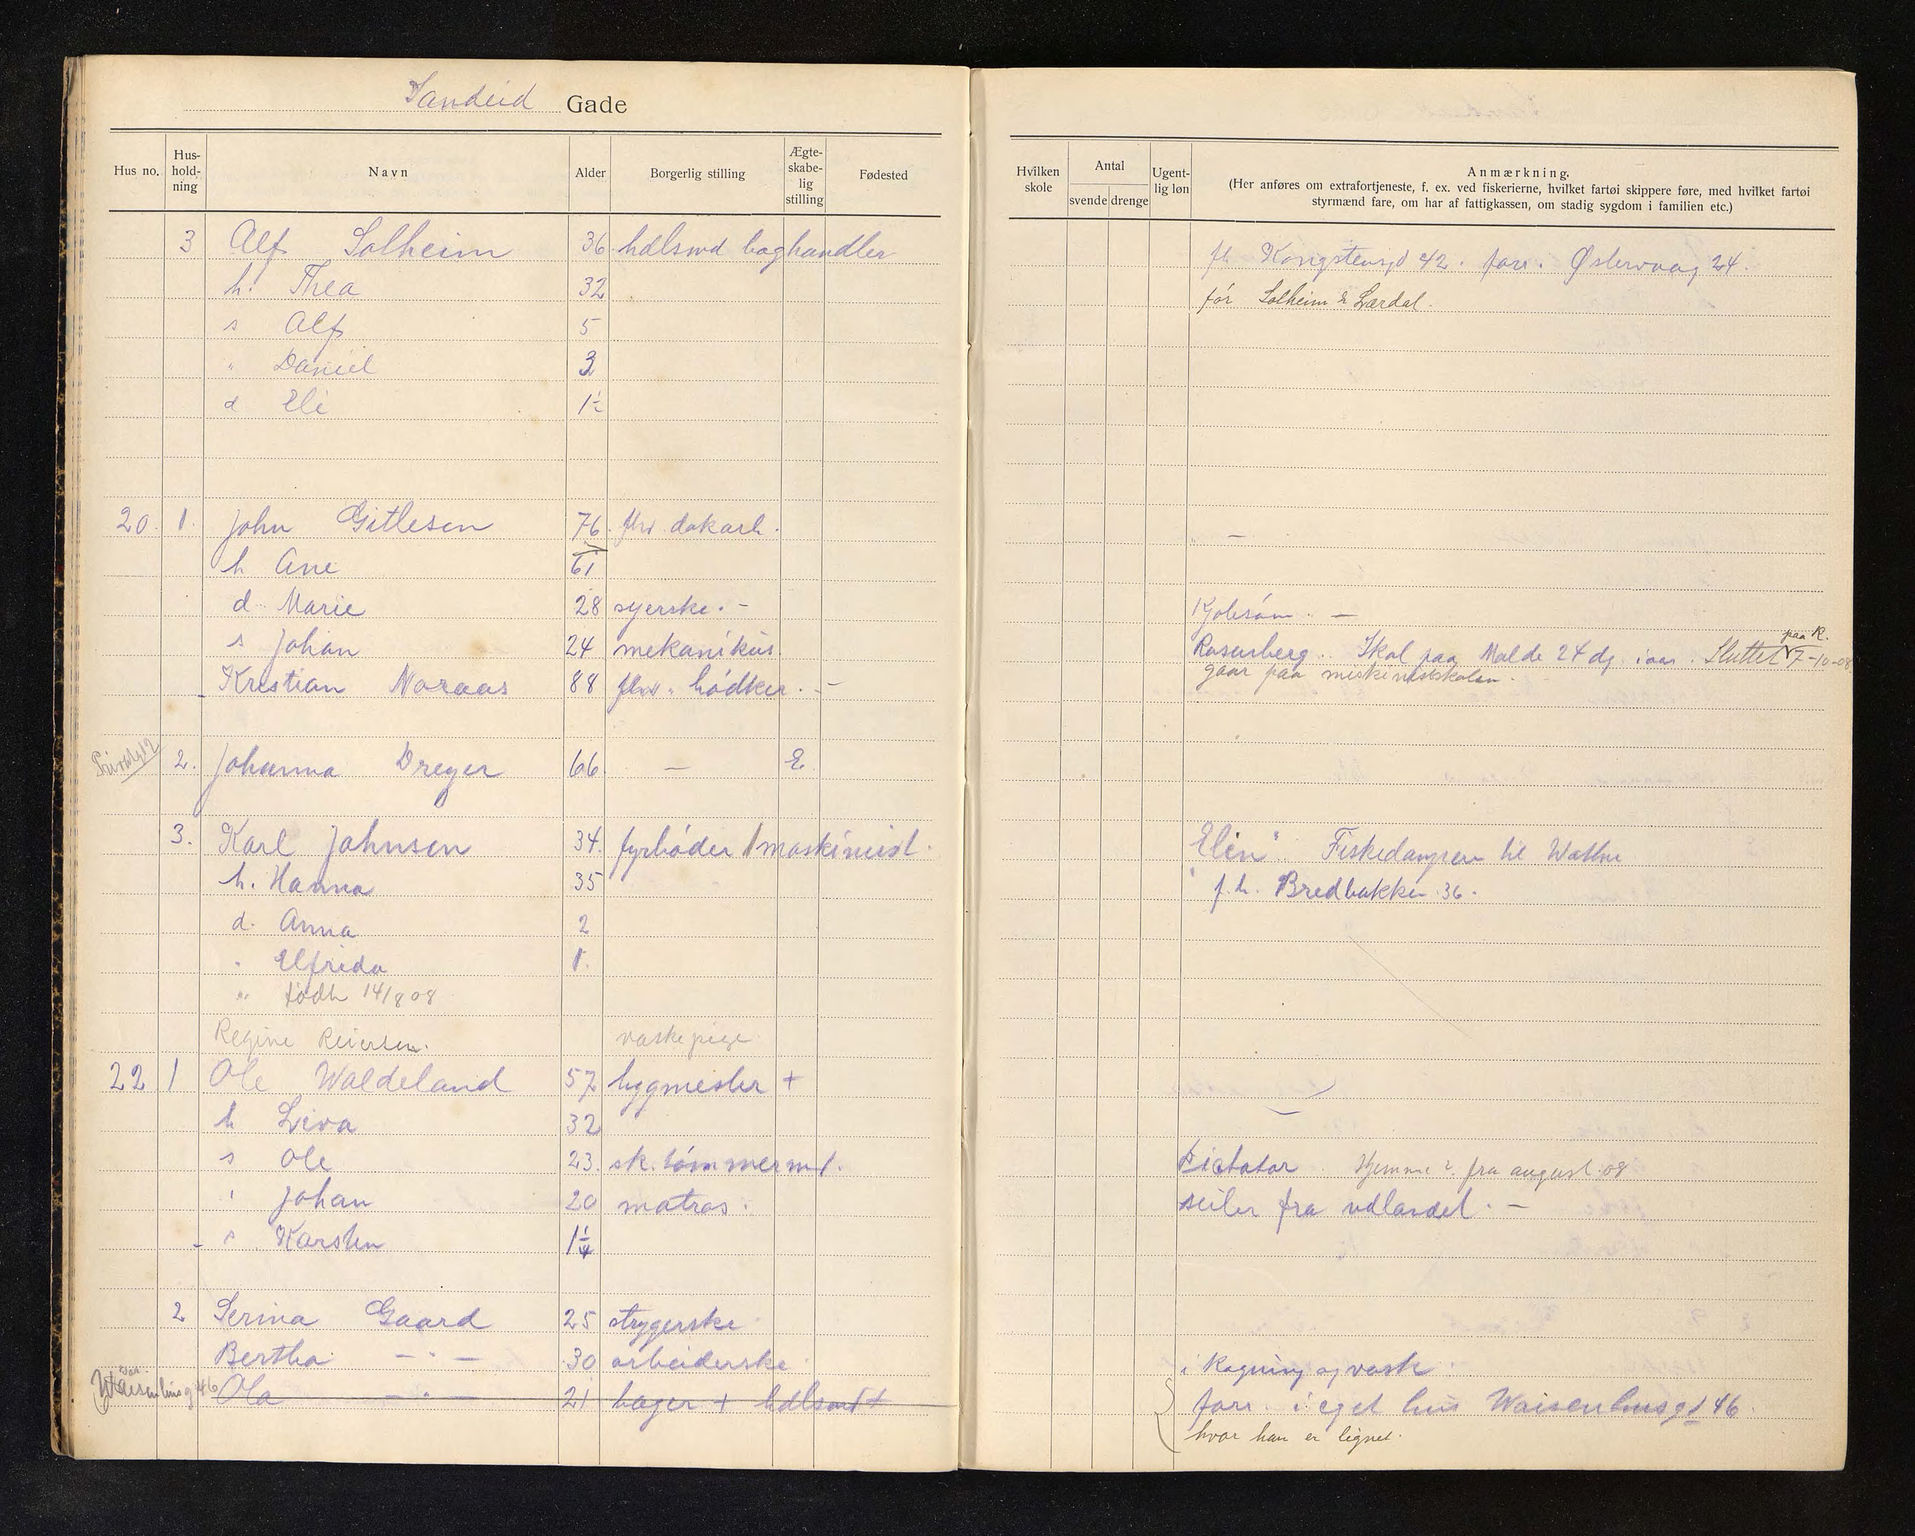 Sandeid Gade
Hus no. Hus-hold-ning Navn Alder Borgerlig stilling Ægte-skabe-lig stilling Fødested
3 Alf Solheim 36 hdlsmd boghandler
h. Thea 32
s Alf 5
" Daniel 3
d Eli 1½
20. 1. John Gitlesen 76 fhv dakarb.
h Ane 61
d. Marie 28 syerske. -
s Johan 24 mekanikus
Kristian Noraas 88 fhv. bødker. -
2. Johanna Dreyer 66 - E
3. Karl Johnsen 34. fyrbøder / maskinist.
h. Hanna 35
d. Anna 2
" Elfrida 1.
" født 14/8 08
Regine Reiersen. vaskepige
22 1 Ole Waldeland 57 bygmester +
h Liva 32
s Ole 23. sk. tømmermd.
" Johan 20 matros.
- s Karsten 1¼
2 Serina Gaard 25 strygerske
Bertha - " - 30 arbeiderske
Waisenhusg 46 Ola - " - 21 bager + hdlsmd +
Hvilken skole Antal svende drenge Ugent-lig løn Anmærkning.
(Her anføres om extrafortjeneste, f. ex. ved fiskerierne, hvilket fartøi skippere føre, med hvilket fartøi
styrmænd fare, om har af fattigkassen, om stadig sygdom i familien etc.)
fh Kongstensgd 42. forr. Østervaag 24.
før Solheim & Lærdal.
" -
Kjolesøm. -
Rosenberg. Skal paa Molde 24 dg. i aar. Sluttet paa R. 7-10-08
gaar paa
"Elin". Fiskedamperen til Wathne
f. h. Bredbakken 36.
Dictator. Hjemme fra august. 08
seiler fra udlandet. -
i Rogning og vask
forr. i eget hus Waisenhusgd 46.
hvor han er lignet.